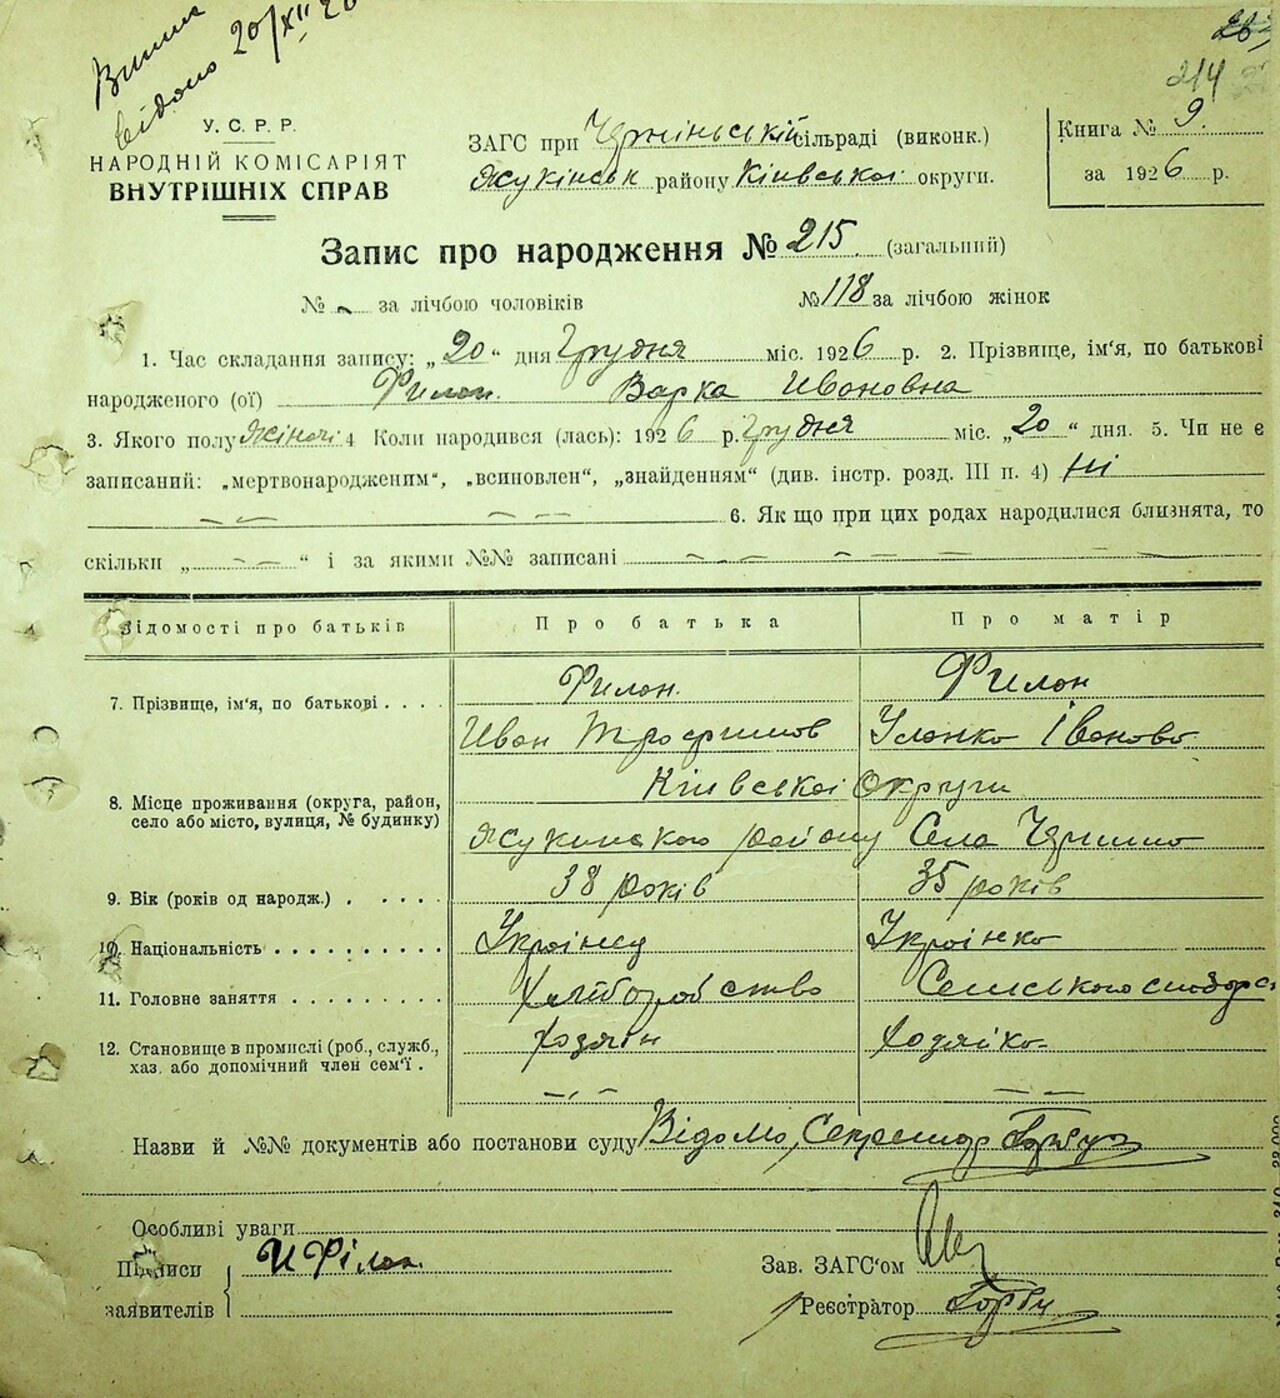 відомо 20/XII 26
214
У. С. Р. Р.
НАРОДНІЙ КОМІСАРІЯТ
ВНУТРІШНІХ СПРАВ
ЗАГС при сільраді (виконк.)
району Київської округи.
Книга № 9.
за 1926 р.
Запис про народження № 215. (загальний)
№ за лічбою чоловіків
№ 118 за лічбою жінок
1. Час складання запису: „20“ дня Грудня міс. 1926 р. 2. Прізвище, ім‘я, по батькові
народженого (ої) Филон. Варка Ивановна
3. Якого полу жіночі 4 Коли народився (лась): 1926 р. Грудня міс. „20“ дня. 5. Чи не є
записаний: „мертвонародженим“, „всиновлен“, „знайденням“ (див. інстр. розд. III п. 4) Ні
6. Як що при цих родах народилися близнята, то
скільки „ “ і за якими №№ записані
Відомості про батьків
Про батька
Про матір
7. Прізвище, ім‘я, по батькові . . . .
Филон.
Филон
Иван Трофимов
Іванова
8. Місце проживання (округа, район,
село або місто, вулиця, № будинку)
Київської Округи
району Села
9. Вік (років од народж.) . . . . .
38 років
35 років
10. Національність . . . . . . . . . .
Українец
Українка
11. Головне заняття . . . . . . . . .
Хліборобство
12. Становище в промислі (роб., служб.,
хаз. або допомічний член сем‘ї .
Хозяїн
Хозяйка
Назви й №№ документів або постанови суду Відомо, Секретар
Особливі уваги
Підписи
заявителів
И Філон.
Зав. ЗАГС‘ом
Реєстратор